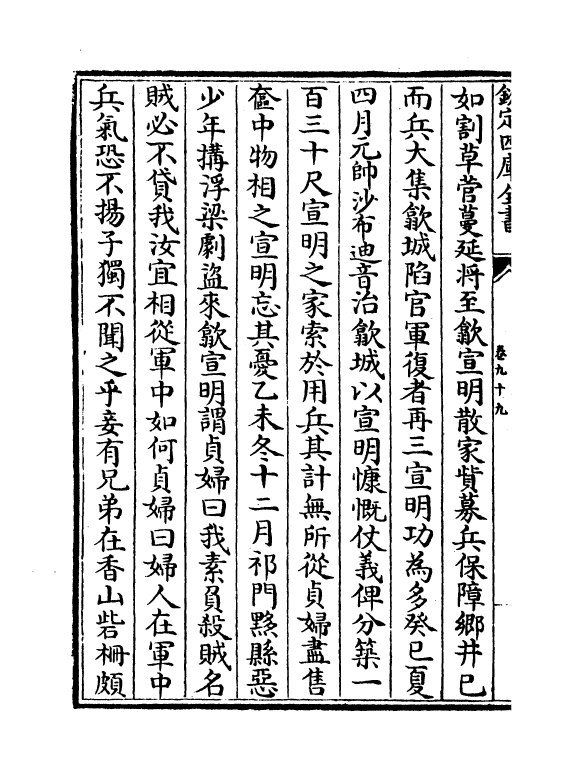 欽定四庫全書
卷九十九
如割草菅蔓延将至歙宣明散家貲募兵保障鄉井已
而兵大集歙城陷官軍復者再三宣明功為多癸巳夏
四月元帥沙布迪音治歙城以宣明慷慨仗義俾分築一
百三十尺宣明之家索於用兵其計無所從貞婦盡售
奩中物相之宣明忘其憂乙未冬十二月祁門黟縣惡
少年搆浮梁劇盜來歙宣明謂貞婦曰我素負殺賊名
賊必不貸我汝宜相從軍中如何貞婦曰婦人在軍中
兵氣恐不揚子獨不聞之乎妾有兄弟在香山砦柵頗